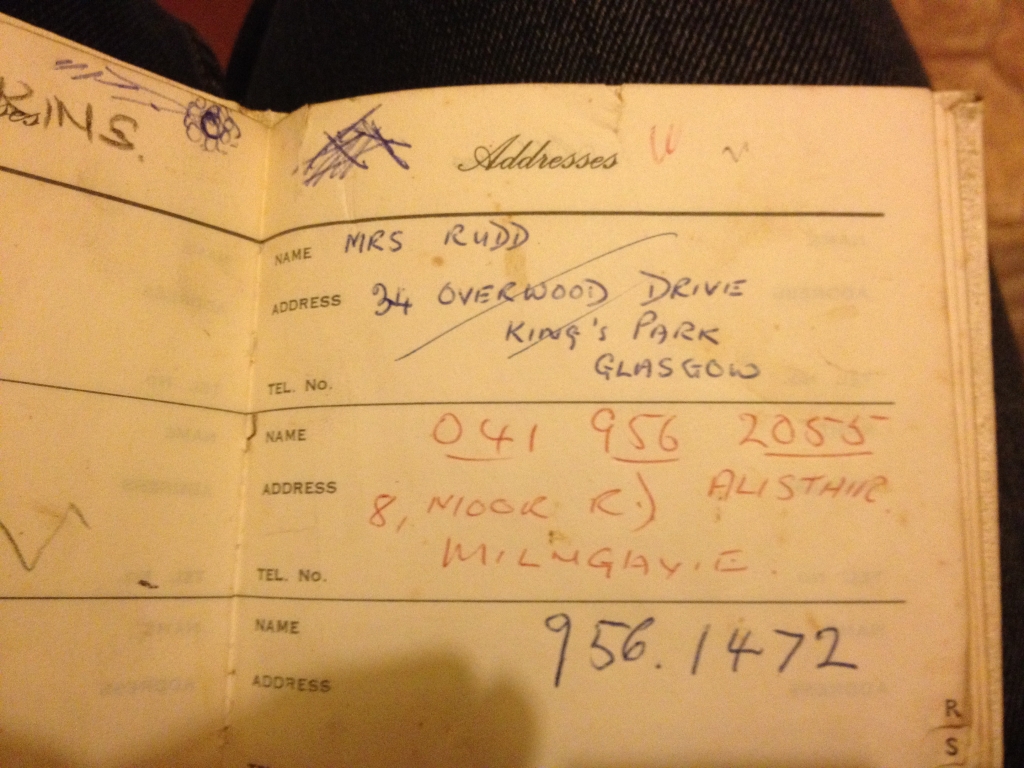 INS.
Addresses
NAME MRS RUDD
ADDRESS 34 OVERWOOD DRIVE
KING'S PARK
GLASGOW
TEL. No.
NAME 041 956 2055
ADDRESS 8, MOOR R.) ALISTAIR
MILNGAVIE.
TEL. No.
NAME 956.1472
ADDRESS
R
S